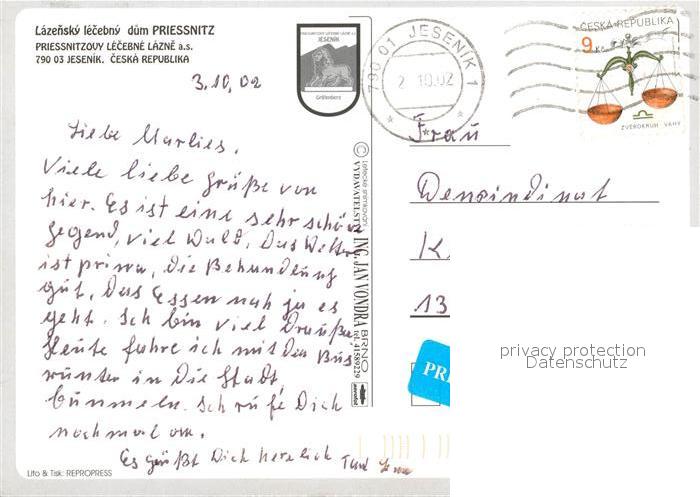 Lázeňský léčebný dům PRIESSNITZ
PRIESSNITZOVY LÉČEBNÉ LÁZNĚ a.s.
790 03 JESENÍK. ČESKÁ REPUBLIKA
3.10.02
JESENÍK
Gräfenberg
790 01 JESENÍK 1
2.10.02
ČESKÁ REPUBLIKA
9 Kč
ZVĚROKRUH VÁHY
Liebe Marlies,
Viele liebe Grüße von
hier. Es ist eine sehr schöne
Gegend, viel Wald. Das Wetter
ist prima, die Behandlung
gut. Das Essen nah ja es
geht. Ich bin viel Draußen
Heute fahre ich mit den Bus
runter in die Stadt,
bummeln. Ich rufe Dich
nochmal an.
Es grüßt Dich herzlich
© Letecké snímkování
VYDAVATELSTVÍ ING. JAN VONDRA BRNO
tel. 41589229
Frau
K.
13
PR
privacy protection
Datenschutz
Lito & Tisk: REPROPRESS